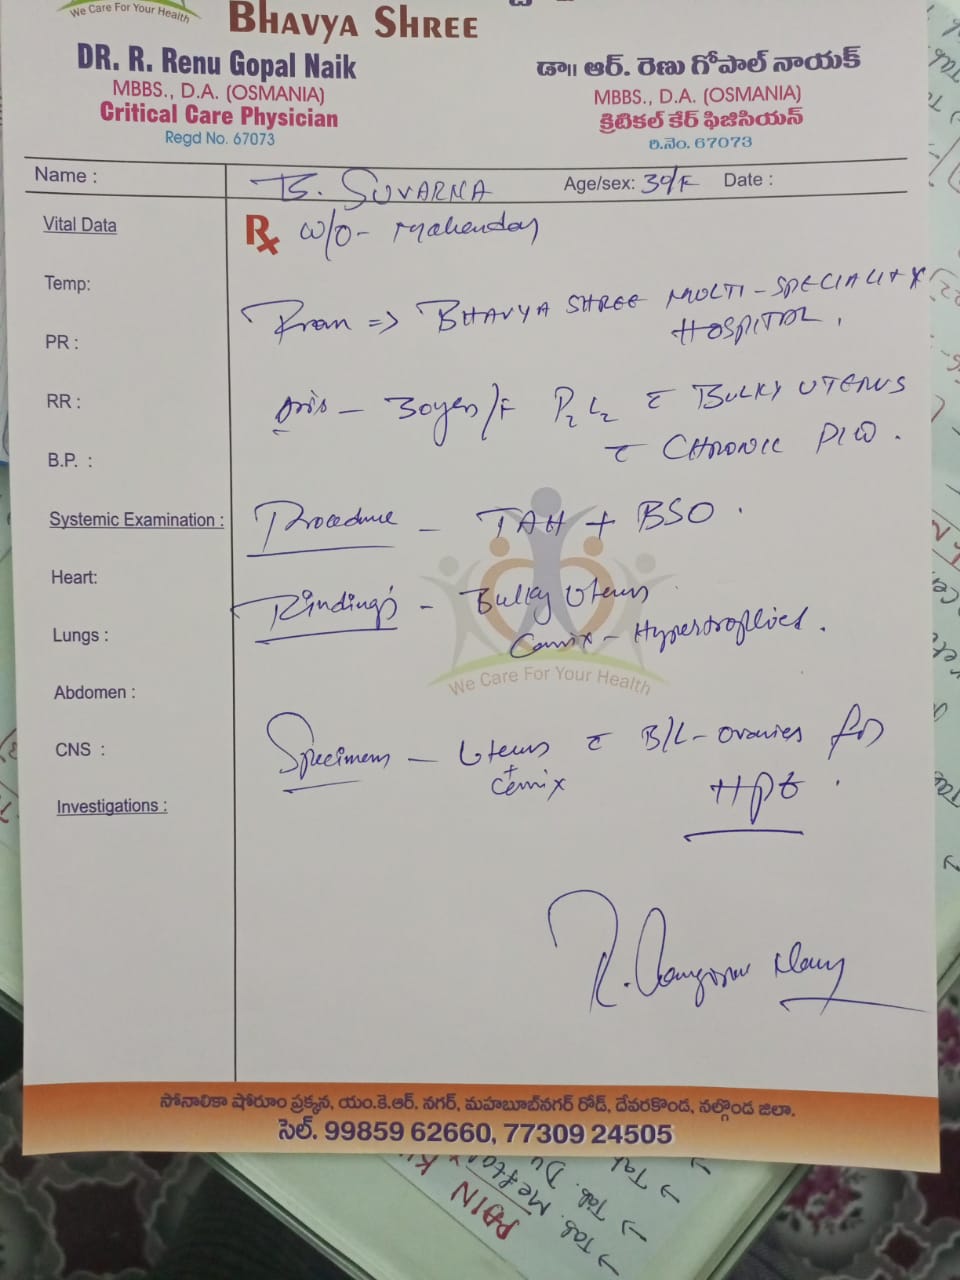 We Care For Your Health
BHAVYA SHREE
DR. R. Renu Gopal Naik
MBBS., D.A. (OSMANIA)
Critical Care Physician
Regd No. 67073
డా|| ఆర్. రెణు గోపాల్ నాయక్
MBBS., D.A. (OSMANIA)
క్రిటికల్ కేర్ ఫిజిసియన్
రి.నెం. 67073
Name : B. SUVARNA Age/sex: 30/F Date :
Vital Data
Rx W/O - Mahendar
Temp:
From => BHAVYA SHREE MULTI-SPECIALITY
HOSPITAL.
PR :
RR :
30yrs/F P2 L2 c BULKY UTERUS
c CHRONIC PID.
B.P. :
Systemic Examination :
Procedure - TAH + BSO.
Heart:
Findings - Bulky Uterus
Cervix - Hypertrophied.
Lungs :
We Care For Your Health
Abdomen :
CNS :
Specimens - Uterus c B/L - ovaries for
+
Cervix
HPE.
Investigations :
సోనాలికా షోరూం ప్రక్కన, యం.కె.ఆర్. నగర్, మహబూబ్‌నగర్ రోడ్, దేవరకొండ, నల్గొండ జిలా.
సెల్. 99859 62660, 77309 24505
PAIN
→ Tab.
→ Tab.
→ Tab